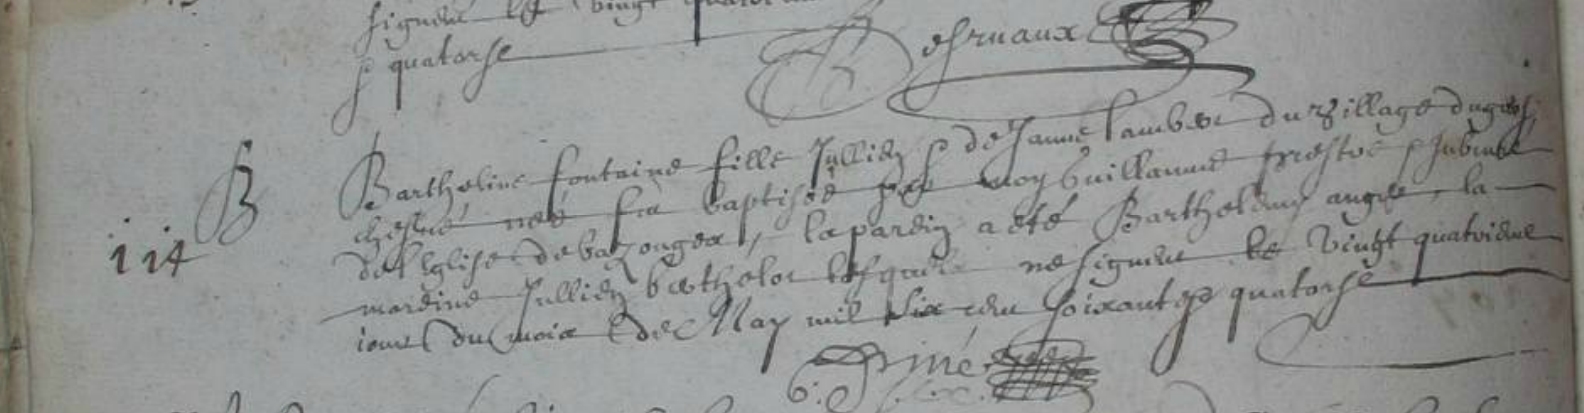 signent le vingt
& quatorse
Desruaux
B
114
Bartheline fontaine fille Jullien & de Janne Lamber du village du gros
chesne née fut baptisée par moy Guillaume prestre &
de leglise de bazouges, la pardin a été Barthelemy angee, la
mardine Jullien berthelot lesquels ne signent le vingt quatriesme
iour du mois de May mil six cens soixant & quatorse
G: Piné